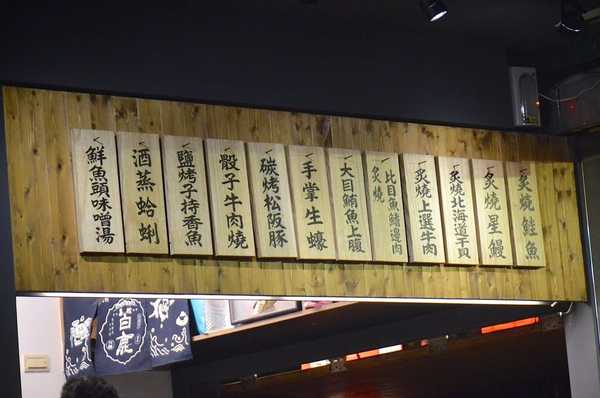 炙燒鮭魚
炙燒星鰻
炙燒北海道干貝
炙燒上選牛肉
比目魚鰭邊肉
炙燒
大目鮪魚上腹
手掌生蠔
碳烤松阪豚
骰子牛肉燒
鹽烤子持香魚
酒蒸蛤蜊
鮮魚頭味噌湯